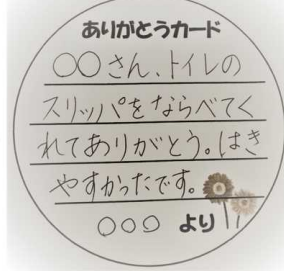 ありがとうカード
○○さん、トイレの
スリッパをならべてく
れてありがとう。はき
やすかったです。
○○○ より